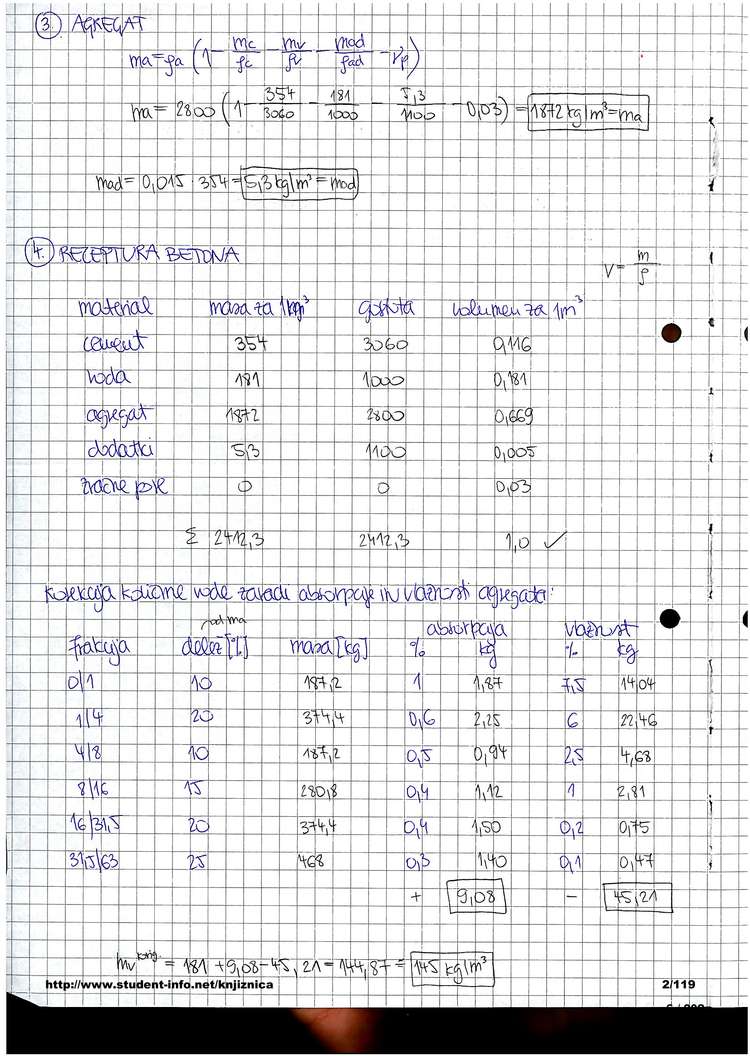 3. AGREGAT
ma = ρa (1 - mc/ρc - mv/ρv - mad/ρad - Vp)
ma = 2800 (1 - 354/3060 - 181/1000 - 5,3/1100 - 0,03) = 1872 kg/m³ = ma
mad = 0,015 · 354 = 5,3 kg/m³ = mad
4. RECEPTURA BETONA
V = m/ρ
material masa za 1 m³ gostota volumen za 1m³
cement 354 3060 0,116
voda 181 1000 0,181
agregat 1872 2800 0,669
dodatki 5,3 1100 0,005
zračne pore 0 0 0,03
Σ 2412,3 2412,3 1,0 ✓
Korekcija količine vode zaradi absorpcije in vlažnosti agregata:
od ma absorpcija vlažnost
frakcija delež [%] masa [kg] % kg % kg
0/1 10 187,2 1 1,87 7,5 14,04
1/4 20 374,4 0,6 2,25 6 22,46
4/8 10 187,2 0,5 0,94 2,5 4,68
8/16 15 280,8 0,4 1,12 1 2,81
16/31,5 20 374,4 0,4 1,50 0,2 0,75
31,5/63 25 468 0,3 1,40 0,1 0,47
+ 9,08 - 45,21
mv korig. = 181 + 9,08 - 45,21 = 144,87 = 145 kg/m³
http://www.student-info.net/knjiznica 2/119